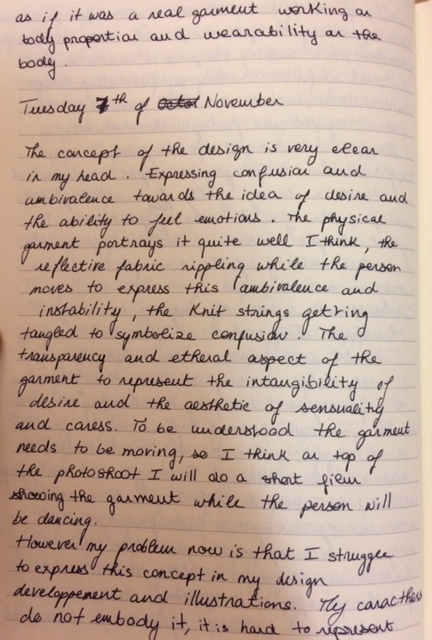 as if it was a real garment working on
body proportion and wearability on the
body.
Tuesday 7th of November
The concept of the design is very clear
in my head. Expressing confusion and
ambivalence towards the idea of desire and
the ability to feel emotions. The physical
garment portrays it quite well I think, the
reflective fabric rippling while the person
moves to express this ambivalence and
instability, the Knit strings getting
tangled to symbolize confusion. The
transparency and etheral aspect of the
garment to represent the intangibility of
desire and the aesthetic of sensuality
and caress. To be understood the garment
needs to be moving, so I think on top of
the photoshoot I will do a short film
showing the garment while the person will
be dancing.
However my problem now is that I struggle
to express this concept in my design
developpement and illustrations. My caracthers
do not embody it, it is hard to represent